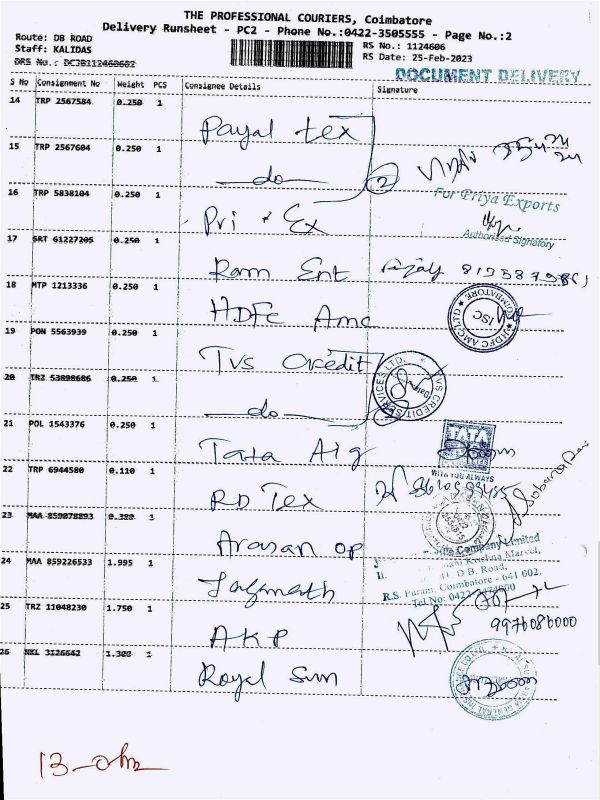 THE PROFESSIONAL COURIERS, Coimbatore
Delivery Runsheet - PC2 - Phone No.:0422-3505555 - Page No.:2
Route: DB ROAD
RS No.: 1124606
Staff: KALIDAS
RS Date: 25-Feb-2023
DRS No.: DCJB112460602
DOCUMENT DELIVERY
S No Consignment No Weight PCS Consignee Details Signature
14 TRP 2567584 0.250 1
Payal tex
15 TRP 2567604 0.250 1
do
2
16 TRP 5838104 0.250 1
For Priya Exports
Pri Ex
Authorised Signatory
17 SRT 61227205 0.250 1
Ram Ent
18 MTP 1213336 0.250 1
HDFC Amc
HDFC AMC LTD COIMBATORE ISC
19 PON 5563939 0.250 1
Tvs Credit
TVS CREDIT SERVICES LTD.
20 TRZ 53898686 0.250 1
do
21 POL 1543376 0.250 1
Tata Aig
TATA
WITH YOU ALWAYS
22 TRP 6944580 0.110 1
RD Tex
23 MAA 859078893 0.380 1
Arasan op
Company Limited
24 MAA 859226533 1.995 1
41, D B. Road,
R.S. Puram, Coimbatore - 641 002.
Tel No: 0422
25 TRZ 11048230 1.750 1
AKP
9976086000
26 NKL 3126642 1.300 1
Royal Sun
13